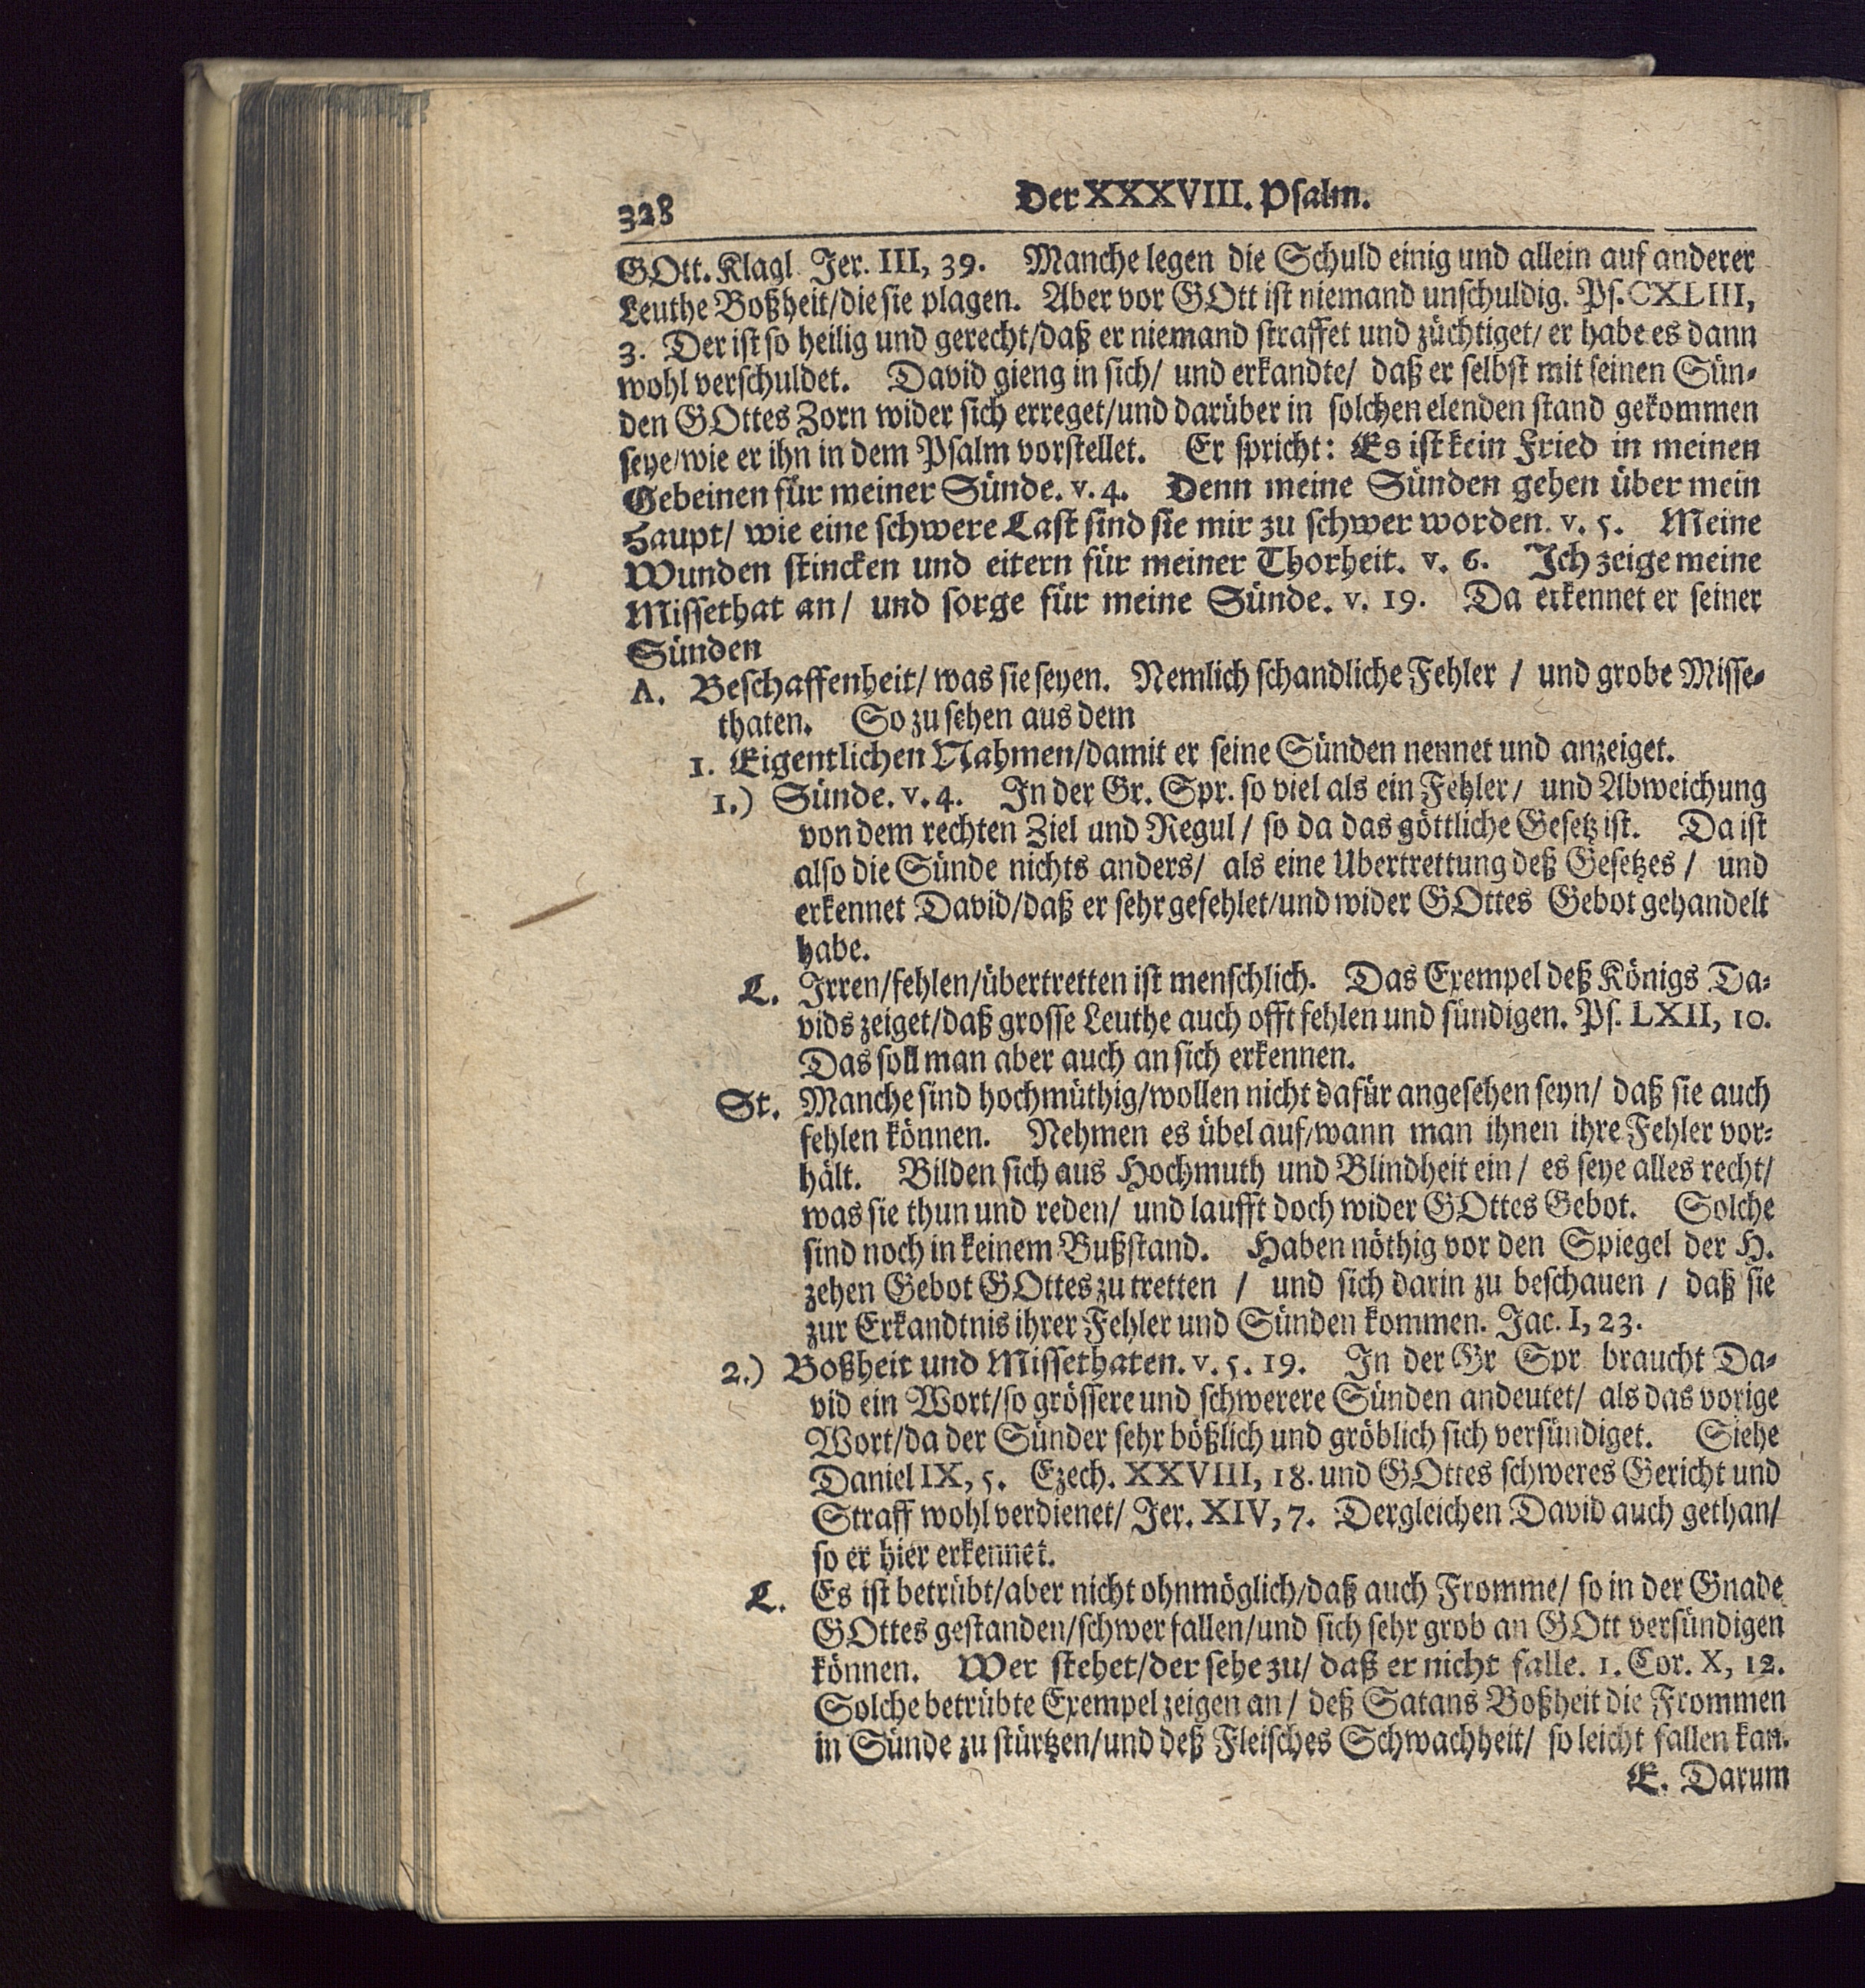 328
Der XXXVIII. Psalm.
GOtt. Klagl Jer. III, 39. Manche legen die Schuld einig und allein auf anderer
Leuthe Boßheit/die sie plagen. Aber vor GOtt ist niemand unschuldig. Ps. CXLIII,
3. Der ist so heilig und gerecht/daß er niemand straffet und züchtiget/ er habe es dann
wohl verschuldet. David gieng in sich/ und erkandte/ daß er selbst mit seinen Sün-
den GOttes Zorn wider sich erreget/und darüber in solchen elenden stand gekommen
seye/wie er ihn in dem Psalm vorstellet. Er spricht: Es ist kein Fried in meinen
Gebeinen für meiner Sünde. v. 4. Denn meine Sünden gehen über mein
Haupt/ wie eine schwere Last sind sie mir zu schwer worden. v. 5. Meine
Wunden stincken und eitern für meiner Thorheit. v. 6. Ich zeige meine
Missethat an/ und sorge für meine Sünde. v. 19. Da erkennet er seiner
Sünden
A. Beschaffenheit/ was sie seyen. Nemlich schandliche Fehler / und grobe Misse-
thaten. So zu sehen aus dem
1. Eigentlichen Nahmen/damit er seine Sünden nennet und anzeiget.
1.) Sünde. v. 4. In der Gr. Spr. so viel als ein Fehler/ und Abweichung
von dem rechten Ziel und Regul / so da das göttliche Gesetz ist. Da ist
also die Sünde nichts anders/ als eine Ubertrettung deß Gesetzes / und
erkennet David/daß er sehr gefehlet/und wider GOttes Gebot gehandelt
habe.
L. Irren/fehlen/übertretten ist menschlich. Das Exempel deß Königs Da-
vids zeiget/daß grosse Leuthe auch offt fehlen und sündigen. Ps. LXII, 10.
Das soll man aber auch an sich erkennen.
St. Manche sind hochmüthig/wollen nicht dafür angesehen seyn/ daß sie auch
fehlen können. Nehmen es übel auf/wann man ihnen ihre Fehler vor-
hält. Bilden sich aus Hochmuth und Blindheit ein / es seye alles recht/
was sie thun und reden/ und laufft doch wider GOttes Gebot. Solche
sind noch in keinem Bußstand. Haben nöthig vor den Spiegel der H.
zehen Gebot GOttes zu tretten / und sich darin zu beschauen / daß sie
zur Erkandtnis ihrer Fehler und Sünden kommen. Jac. I, 23.
2.) Boßheit und Missethaten. v. 5. 19. In der Gr Spr braucht Da-
vid ein Wort/so grössere und schwerere Sünden andeutet/ als das vorige
Wort/da der Sünder sehr bößlich und gröblich sich versündiget. Siehe
Daniel IX, 5. Ezech. XXVIII, 18. und GOttes schweres Gericht und
Straff wohl verdienet/ Jer. XIV, 7. Dergleichen David auch gethan/
so er hier erkennet.
L. Es ist betrübt/aber nicht ohnmöglich/daß auch Fromme/ so in der Gnade
GOttes gestanden/schwer fallen/und sich sehr grob an GOtt versündigen
können. Wer stehet/der sehe zu/ daß er nicht falle. 1. Cor. X, 12.
Solche betrübte Exempel zeigen an / deß Satans Boßheit die Frommen
in Sünde zu stürtzen/und deß Fleisches Schwachheit/ so leicht fallen kan.
E. Darum